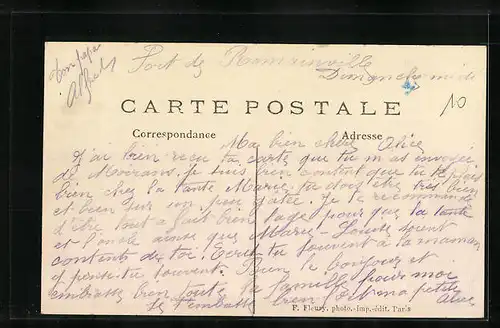 Ton papa
Alfred
Fort de Romainville
Dimanche midi
CARTE POSTALE
10
Correspondance
Adresse
Ma bien chère Alice
J'ai bien reçu ta carte que tu m'as envoyée
de Moirans. je suis bien content que tu te plais
bien chez la tante Marie, tu dois être très bien
et bien sur un peu gâtée. Je te recommande
d'être tout à fait bien sage pour que la tante
et l'oncle ainsi que Marie-Louise soient
contents de toi. Ecris souvent à ta maman
et pense-tu souvent. Bien le bonjour et
embrasse bien toute la famille pour moi
Je t'embrasse bien fort ma petite
Alice
F. Fleury, photo.-imp.-édit. Paris